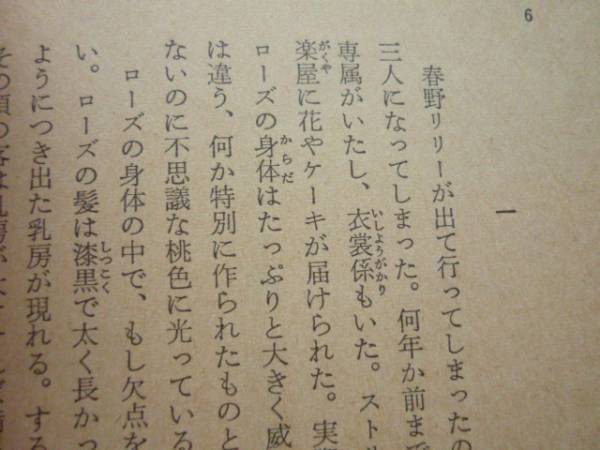 6
一
春野リリーが出て行ってしまったの
三人になってしまった。何年か前まで
専属がいたし、衣裳係もいた。ストリ
楽屋に花やケーキが届けられた。実
ローズの身体はたっぷりと大きく威
は違う、何か特別に作られたものと
ないのに不思議な桃色に光っている
ローズの身体の中で、もし欠点を
い。ローズの髪は漆黒で太く長かっ
ようにつき出た乳房が現れる。する
その頃の客は乳房が大